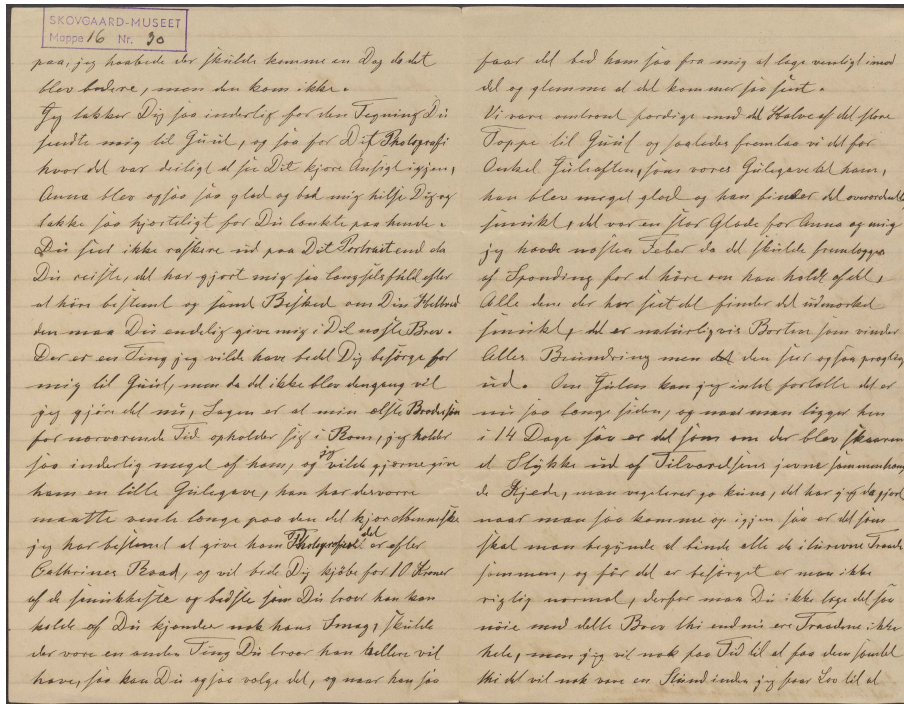 SKOVGAARD-MUSEET
Mappe 16 Nr. 30
paa, jeg haabede der skulde komme en Dag da det
blev bedre, men den kom ikke.
Jeg takker Dig saa inderlig for den Tegning Du
sendte mig til Guul, og saa for Dit Photografi
hvor det var deiligt at see Dit kjære Ansigt igjen,
Anna blev ogsaa saa glad og bad mig hilse Dig og
takke saa hjerteligt for Du tænkte paa hende.
Du seer ikke raskere ud paa Dit Portræt end da
Du reiste, det har gjort mig saa længselsfuld efter
at høre bestemt og sand Besked om Din Helbred
den maa Du endelig give mig i Dit næste Brev.
Der er en Ting jeg vilde have bedt Dig besørge for
mig til Guul, men da det ikke blev dengang vil
jeg gjøre det nu, Sagen er at min ælste Brodersøn
for nærværende Tid opholder sig i Rom, jeg holder
saa inderlig meget af ham, og jeg vilde gjerne give
ham en lille Gulegave, han har desværre
maatte vente længe paa den det kjære Menneske
jeg har bestemt at give ham Photografier det er efter
Cathrines Raad, og vil bede Dig kjøbe for 10 Kroner
af de smukkeste og bedste som Du troer han kan
holde af Du kjender nok hans Smag, skulde
der være en anden Ting Du troer han hellere vil
have, saa kan Du ogsaa vælge det, og naar han saa
faar det bed ham saa fra mig at tage venligt imod
det og glemme at det kommer saa sent.
Vi vare omtrent færdige med det Halve af det store
Teppe til Guul og saaledes fremlaa vi det for
Onkel Guleaften, som vores Gulegave til ham,
han blev meget glad og han finder det overordentlig
smukt, det var en stor Glæde for Anna og mig
jeg havde næsten Feber da det skulde fremlægges
af Spænding for at høre om han holdt af det,
Alle dem der har seet det finder det udmærket
smukt, det er naturligvis Borten som vinder
Alles Beundring men den seer ogsaa prægtig
ud. Om Gulen kan jeg intet fortælle det er
nu saa længe siden, og naar man ligger hen
i 14 Dage saa er det som om der blev skaaren
et Stykke ud af Tilværelsens jevne sammenhæng
de Kjede, man vegeterer jo kuns, det har jeg da gjort
naar man saa komme op igjen saa er det som
skal man begynde at binde alle de iturevne Traade
sammen, og før det er besørget er man ikke
rigtig normal, derfor maa Du ikke tage det saa
nøie med dette Brev thi endnu ere Traadene ikke
hele, men jeg vil nok faa Tid til at faa dem samlet
thi det vil nok vare en Stund inden jeg faar Lov til at